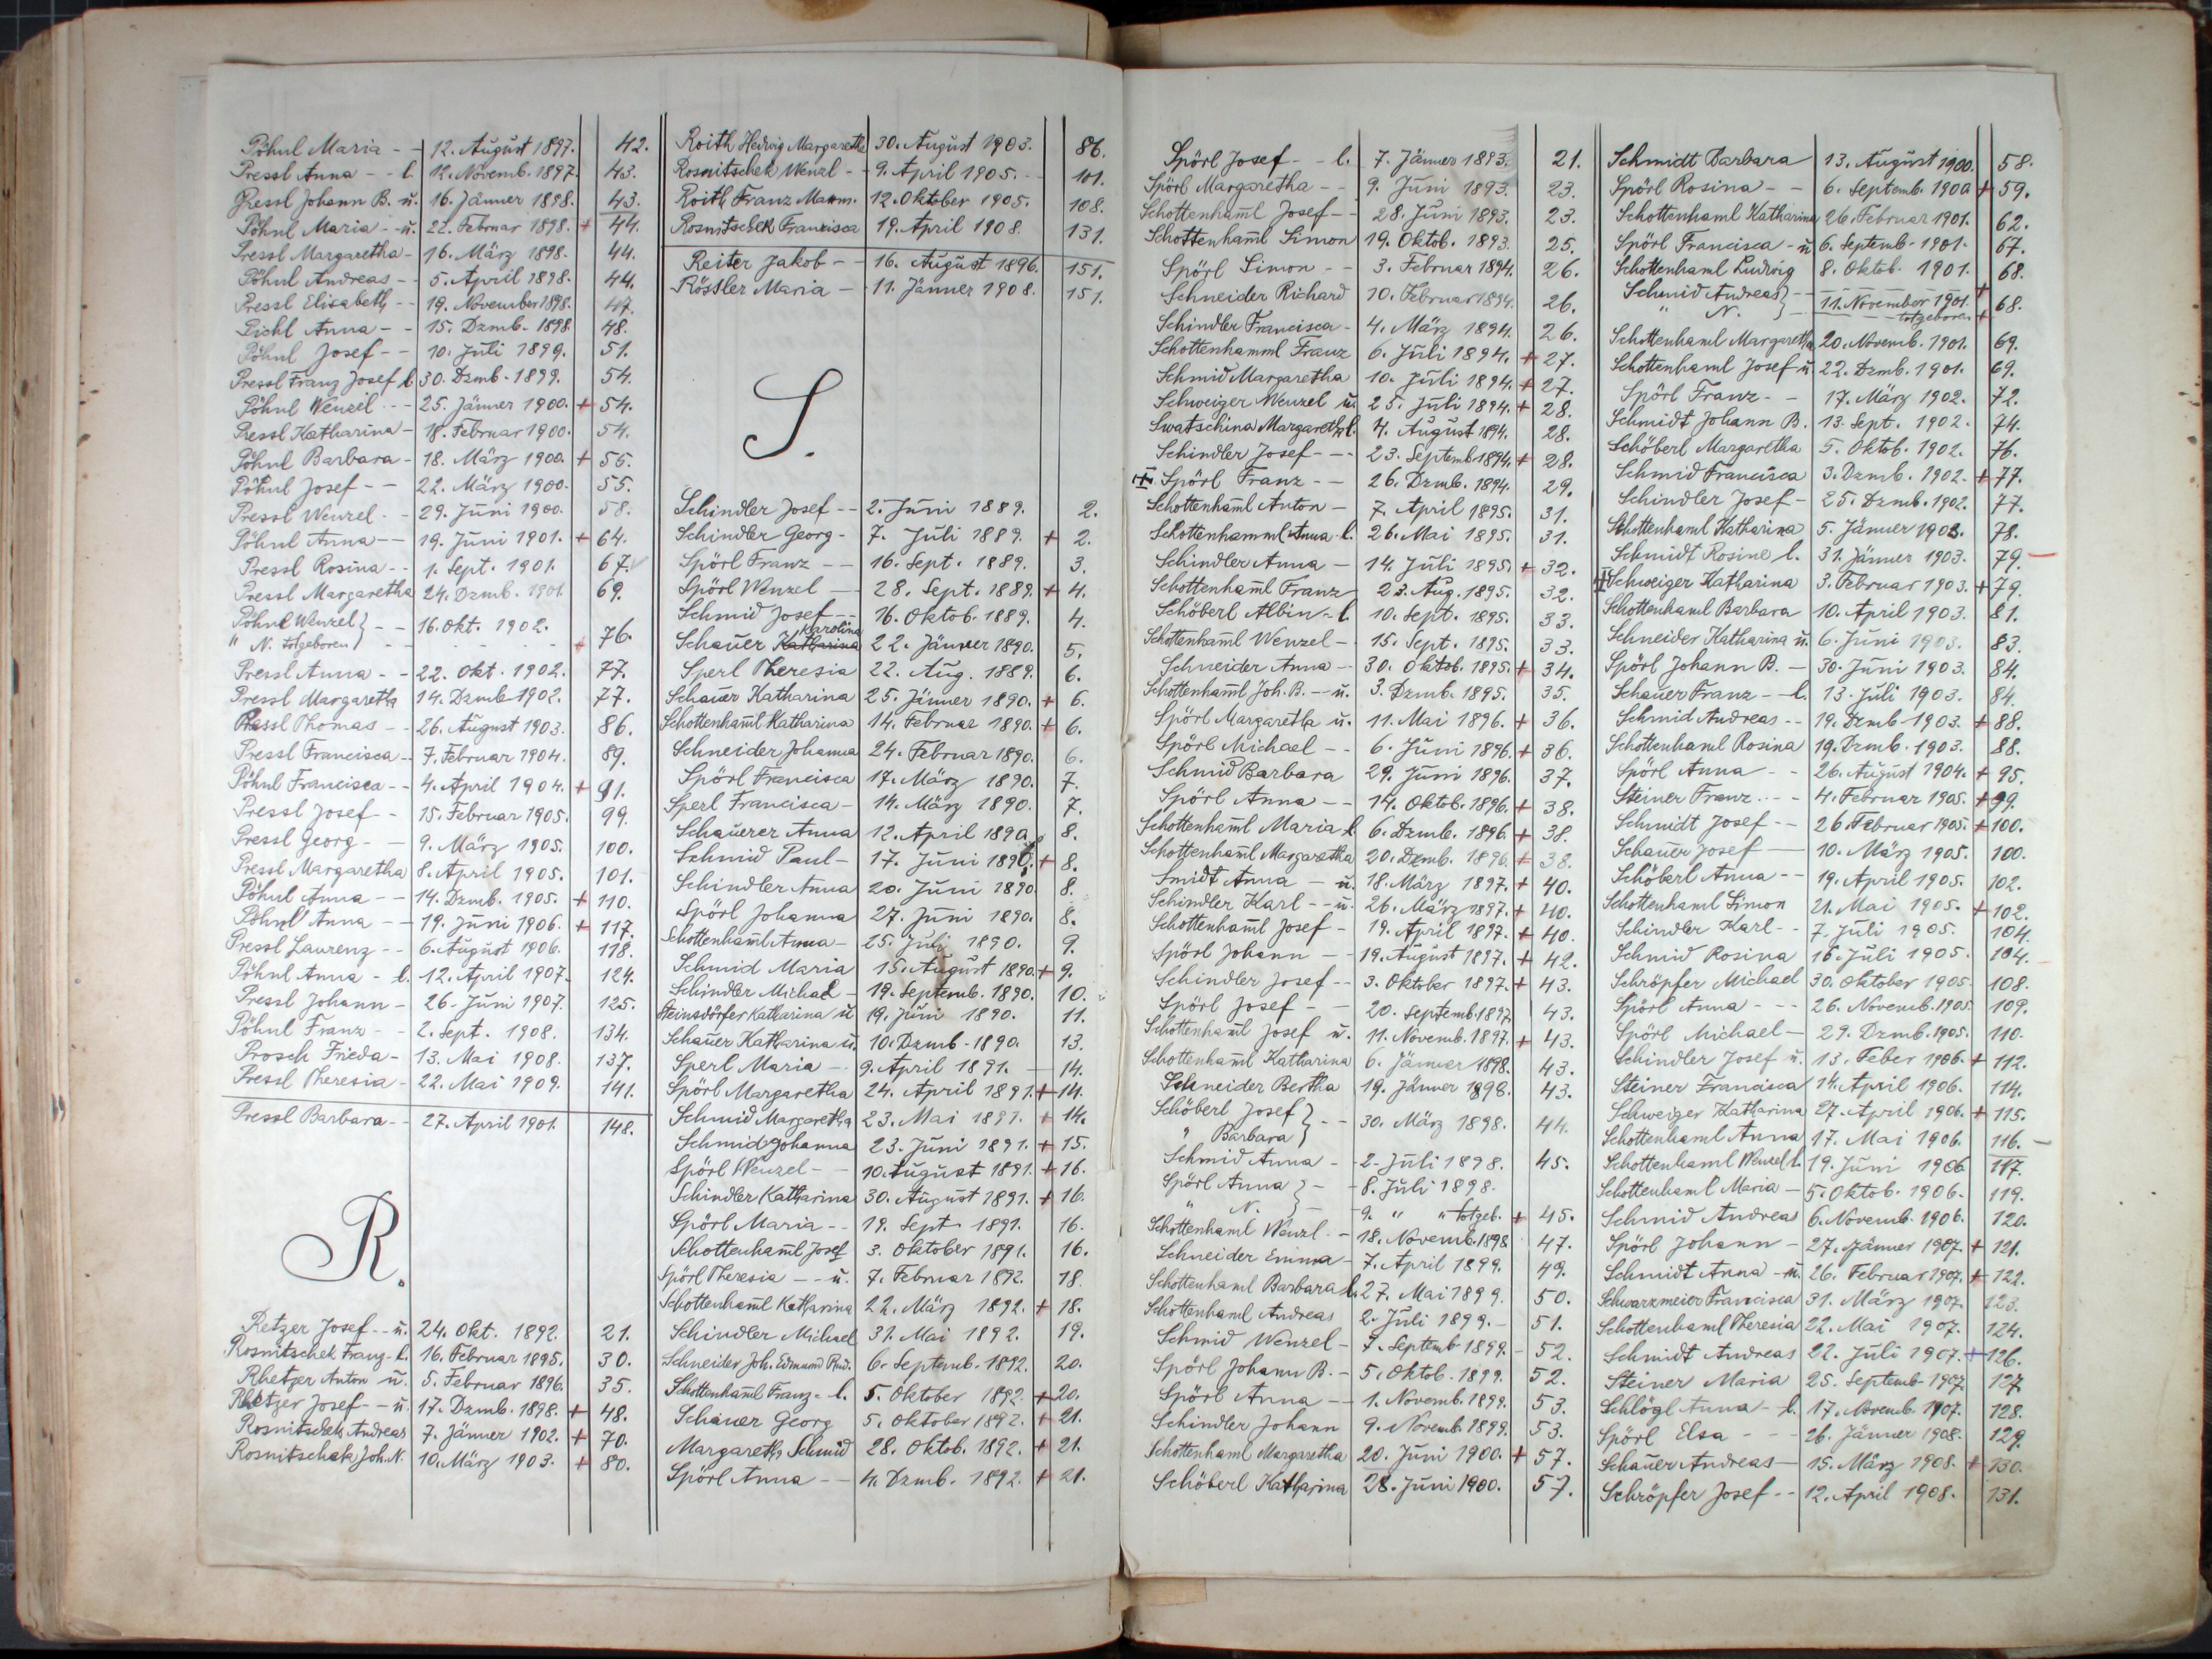 Pöhnl Maria - - 12. August 1897. 42.
Pressl Anna - - l. 12. Novemb. 1897. 43.
Pressl Johann B. u. 16. Jänner 1898. 43.
Pöhnl Maria - - u. 22. Februar 1898. + 44.
Pressl Margaretha - 16. März 1898. 44.
Pöhnl Andreas - - 5. April 1898. 44.
Pressl Elisabeth - - 19. November 1898. 47.
Pichl Anna - - 15. Dzmb. 1898. 48.
Pöhnl Josef - - 10. Juli 1899. 51.
Pressl Franz Josef l. 30. Dzmb. 1899. 54.
Pöhnl Wenzel - - 25. Jänner 1900. + 54.
Pressl Katharina - 18. Februar 1900. 54.
Pöhnl Barbara - 18. März 1900. + 55.
Pöhnl Josef - - 22. März 1900. 55.
Pressl Wenzel - - 29. Juni 1900. 58.
Pöhnl Anna - - 19. Juni 1901. + 64.
Pressl Rosina - - 1. Sept. 1901. 67.
Pressl Margaretha 24. Dzmb. 1901. 69.
Pöhnl Wenzel } - - 16. Okt. 1902.
" N. totgeboren } - - + 76.
Pressl Anna - - 22. Okt. 1902. 77.
Pressl Margareth 14. Dzmb. 1902. 77.
Pressl Thomas - - 26. August 1903. 86.
Pressl Francisca - - 7. Februar 1904. 89.
Pöhnl Francisca - - 4. April 1904. + 91.
Pressl Josef - 15. Februar 1905. 99.
Pressl Georg - - 9. März 1905. 100.
Pressl Margaretha 8. April 1905. 101.
Pöhnl Anna - - 14. Dzmb. 1905. + 110.
Pöhnl Anna - - 19. Juni 1906. + 117.
Pressl Laurenz - - 6. August 1906. 118.
Pöhnl Anna - l. 12. April 1907. 124.
Pressl Johann - 26. Juni 1907. 125.
Pöhnl Franz - - 2. Sept. 1908. 134.
Prosch Frieda - 13. Mai 1908. 137.
Pressl Theresia - 22. Mai 1909. 141.
Pressl Barbara - - 27. April 1901. 148.
R.
Retzer Josef - - u. 24. Okt. 1892. 21.
Rosnitschek Franz - l. 16. Februar 1895. 30.
Rhetzer Anton u. 5. Februar 1896. 35.
Rhetzer Josef - - u. 17. Dzmb. 1898. + 48.
Rosnitschek Andreas 7. Jänner 1902. + 70.
Rosnitschek Joh. N. 10. März 1903. + 80.
Roith Hedwig Margarethe 30. August 1903. 86.
Rosnitschek Wenzl - - 9. April 1905. - - 101.
Roith Franz Marm. 12. Oktober 1905. 108.
Rosnitschek Francisca 19. April 1908. 131.
Reiter Jakob - - 16. August 1896. 151.
Rössler Maria - 11. Jänner 1908. 151.
S.
Schindler Josef - - 2. Juni 1889. 2.
Schindler Georg - 7. Juli 1889. + 2.
Spörl Franz - - 16. Sept. 1889. 3.
Spörl Wenzel - 28. Sept. 1889. + 4.
Schmid Josef - - 16. Oktob. 1889. 4.
Karolina
Schauer Katharina 22. Jänner 1890. 5.
Sperl Theresia 22. Aug. 1889. 6.
Schauer Katharina 25. Jänner 1890. + 6.
Schottenham̅l Katharina 14. Februar 1890. + 6.
Schneider Johanna 24. Februar 1890. 6.
Spörl Francisca 17. März 1890. 7.
Sperl Francisca - 14. März 1890. 7.
Schauerer Anna 12. April 1890. 8.
Schmid Paul - 17. Juni 1890. + 8.
Schindler Anna 20. Juni 1890. 8.
Spörl Johanna 27. Juni 1890. 8.
Schottenham̅l Anna - 25. Juli 1890. 9.
Schmid Maria 15. August 1890. + 9.
Schindler Michael - 19. Septemb. 1890. 10.
Steinsdörfer Katharina u. 19. Juni 1890. 11.
Schauer Katharina u. 10. Dzmb. 1890. 13.
Sperl Maria - - 9. April 1891. - 14.
Spörl Margaretha 24. April 1891. + 14.
Schmid Margaretha 23. Mai 1891. + 14.
Schmid Johanna 23. Juni 1891. + 15.
Spörl Wenzel - - 10. August 1891. + 16.
Schindler Katharina 30. August 1891. + 16.
Spörl Maria - - 19. Sept. 1891. 16.
Schottenham̅l Josef 3. Oktober 1891. 16.
Spörl Theresia - - u. 7. Februar 1892. 18.
Schottenham̅l Katharina 22. März 1892. + 18.
Schindler Michael 31. Mai 1892. 19.
Schneider Joh. Edmund Rud. 6. Septemb. 1892. 20.
Schottenham̅l Franz - l. 5. Oktober 1892. + 20.
Schauer Georg 5. Oktober 1892. + 21.
Margareth Schmid 28. Oktob. 1892. + 21.
Spörl Anna - - 4. Dzmb. 1892. + 21.
Spörl Josef - - l. 7. Jänner 1893. 21.
Spörl Margaretha - - 9. Juni 1893. 23.
Schottenham̅l Josef - - 28. Juni 1893. 23.
Schottenham̅l Simon 19. Oktob. 1893. 25.
Spörl Simon - - 3. Februar 1894. 26.
Schneider Richard 10. Februar 1894. 26.
Schindler Francisca - 4. März 1894. 26.
Schottenhamml Franz 6. Juli 1894. + 27.
Schmid Margaretha 10. Juli 1894. + 27.
Schweizer Wenzel u. 25. Juli 1894. + 28.
Swatschina Margareth l. 4. August 1894. 28.
Schindler Josef - - 23. Septemb. 1894. + 28.
Spörl Franz - - 26. Dzmb. 1894. 29.
Schottenham̅l Anton - 7. April 1895. 31.
Schottenhamml Anna l. 26. Mai 1895. 31.
Schindler Anna - 14. Juli 1895. + 32.
Schottenham̅l Franz 23. Aug. 1895. 32.
Schöberl Albin - l. 10. Sept. 1895. 33.
Schottenham̅l Wenzel - 15. Sept. 1895. 33.
Schneider Anna - - 30. Oktob. 1895. + 34.
Schottenham̅l Joh. B. - - u. 3. Dzmb. 1895. 35.
Spörl Margaretha u. 11. Mai 1896. + 36.
Spörl Michael - - 6. Juni 1896. + 36.
Schmid Barbara 29. Juni 1896. 37.
Spörl Anna - - 14. Oktob. 1896. + 38.
Schottenham̅l Maria l. 6. Dzmb. 1896. + 38.
Schottenham̅l Margaretha 20. Dzmb. 1896. + 38.
Smidt Anna - u. 18. März 1897. + 40.
Schindler Karl - - u. 26. März 1897. + 40.
Schottenham̅l Josef - 19. April 1897. + 40.
Spörl Johann - - 19. August 1897. + 42.
Schindler Josef - - 3. Oktober 1897. + 43.
Spörl Josef - - 20. Septemb. 1897. 43.
Schottenham̅l Josef u. 11. Novemb. 1897. + 43.
Schottenham̅l Katharina 6. Jänner 1898. 43.
Schneider Bertha 19. Jänner 1898. 43.
Schöberl Josef } - - 30. März 1898. 44.
" Barbara }
Schmid Anna - - 2. Juli 1898. 45.
Spörl Anna } - - 8. Juli 1898.
" N. } - 9. " " totgeb. + 45.
Schottenhaml Wenzl - - 18. Novemb. 1898. 47.
Schneider Emma - 7. April 1899. 49.
Schottenhaml Barbara l. 27. Mai 1899. 50.
Schottenhaml Andreas 2. Juli 1899. - 51.
Schmid Wenzel - 7. Septemb. 1899. - 52.
Spörl Johann B. - 5. Oktob. 1899. 52.
Spörl Anna - - 1. Novemb. 1899. 53.
Schindler Johann 9. Novemb. 1899. 53.
Schottenhaml Margaretha 20. Juni 1900. + 57.
Schöberl Katharina 28. Juni 1900. 57.
Schmidt Barbara 13. August 1900. 58.
Spörl Rosina - - 6. Septemb. 1900. + 59.
Schottenhaml Katharina 26. Februar 1901. 62.
Spörl Francisca - u. 6. Septemb. 1901. 67.
Schottenhaml Ludwig 8. Oktob. 1901. 68.
Schmid Andreas } - - 11. November 1901. + 68.
" N. } - - totgeboren +
Schottenhaml Margaretha 20. Novemb. 1901. 69.
Schottenhaml Josef u. 22. Dzmb. 1901. 69.
Spörl Franz - - 17. März 1902. 72.
Schmidt Johann B. 13. Sept. 1902. 74.
Schöberl Margaretha 5. Oktob. 1902. 76.
Schmid Francisca 3. Dzmb. 1902. + 77.
Schindler Josef - 25. Dzmb. 1902. 77.
Schottenhaml Katharina 5. Jänner 1903. 78.
Schmidt Rosine l. 31. Jänner 1903. 79.
Schweiger Katharina 3. Februar 1903. + 79.
Schottenhaml Barbara 10. April 1903. 81.
Schneider Katharina u. 6. Juni 1903. 83.
Spörl Johann B. - 30. Juni 1903. 84.
Schauer Franz - - l. 13. Juli 1903. 84.
Schmid Andreas - - 19. Dzmb. 1903. + 88.
Schottenhaml Rosina 19. Dzmb. 1903. 88.
Spörl Anna - - 26. August 1904. + 95.
Steiner Franz - - 4. Februar 1905. + 99.
Schmidt Josef - - 26. Februar 1905. + 100.
Schauer Josef - 10. März 1905. 100.
Schöberl Anna - - 19. April 1905. 102.
Schottenhaml Simon 21. Mai 1905. + 102.
Schindler Karl - - 7. Juli 1905. 104.
Schmid Rosina 16. Juli 1905. 104.
Schröpfer Michael 30. Oktober 1905. 108.
Spörl Anna - - - 26. Novemb. 1905. 109.
Spörl Michael - 29. Dzmb. 1905. 110.
Schindler Josef u. 13. Feber 1906. + 112.
Steiner Francisca 14. April 1906. 114.
Schweiger Katharina 27. April 1906. + 115.
Schottenhaml Anna 17. Mai 1906. 116. -
Schottenhaml Wenzel l. 19. Juni 1906 117.
Schottenhaml Maria - 5. Oktob. 1906. 119.
Schmid Andreas 6. Novemb. 1906. 120.
Spörl Johann - 27. Jänner 1907. + 121.
Schmidt Anna - u. 26. Februar 1907. + 122.
Schwarzmeier Francisca 31. März 1907. 123.
Schottenhaml Theresia 22. Mai 1907. 124.
Schmidt Andreas 22. Juli 1907. + 126.
Steiner Maria 25. Septemb. 1907. 127
Schlögl Anna - l. 17. Novemb. 1907. 128.
Spörl Elsa - - - 26. Jänner 1908. 129.
Schauer Andreas - 15. März 1908. + 130.
Schröpfer Josef - - 12. April 1908. 131.